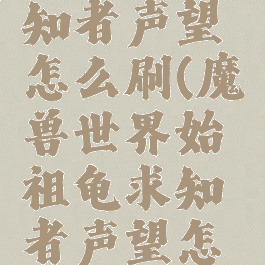 知者声望
怎么刷(魔
兽世界始
祖龟求知
者声望怎